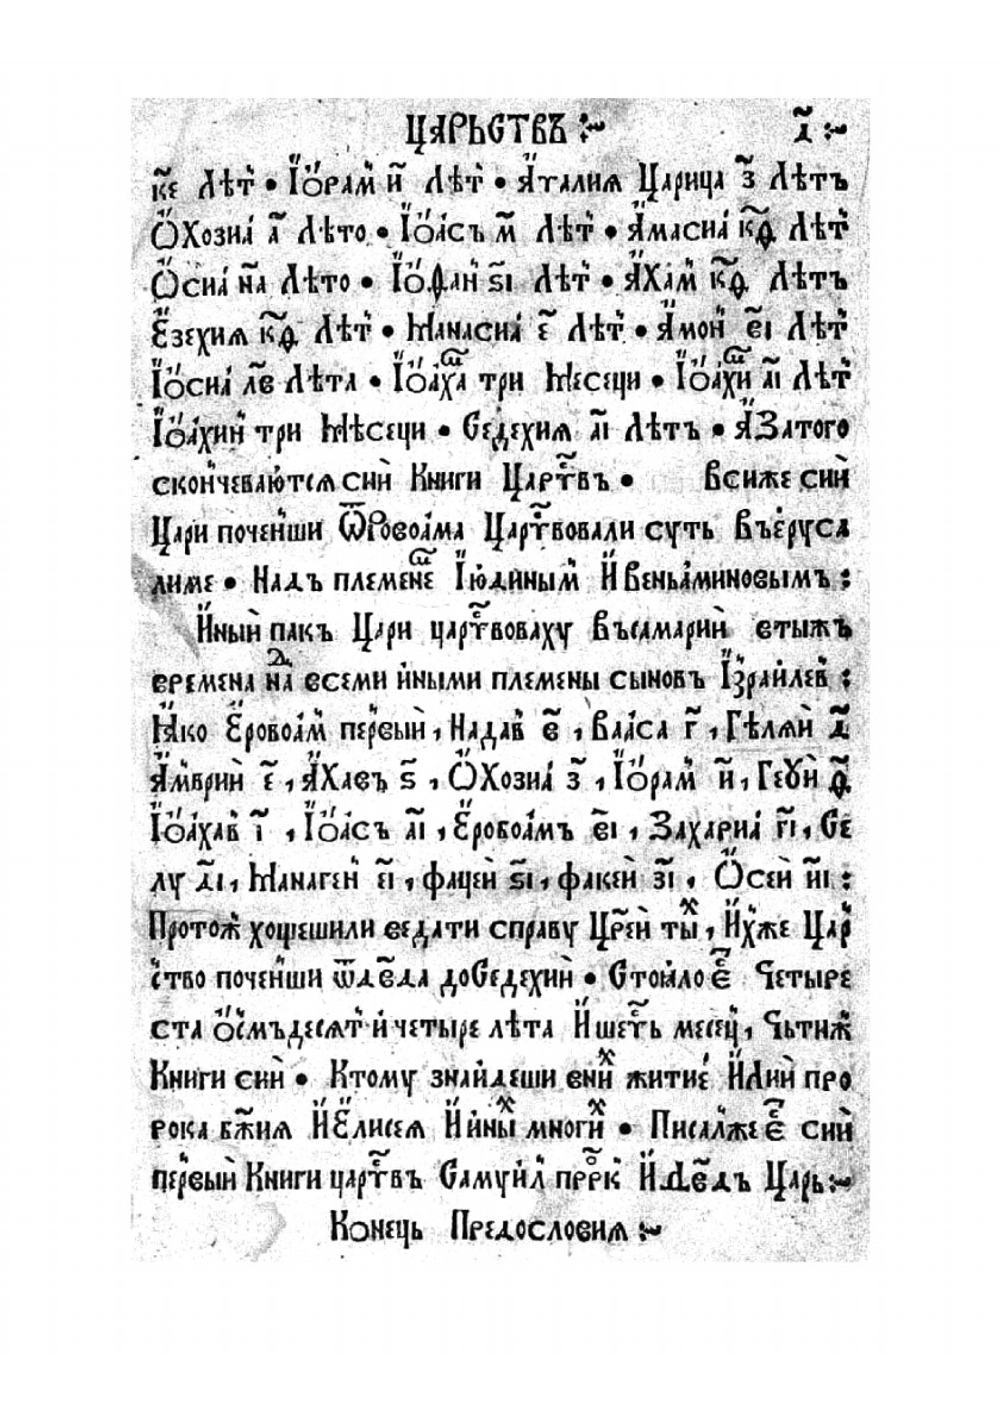 ЦАРЬСТВЪ :~ д҃ :~
к҃е лѣт҇ • Їѡрам҇ и҃ лѣт҇ • Аталия Царица з҃ лѣтъ
Ѡхозиа а҃ лѣто • Їѡасъ м҃ лѣт҇ • Амасиа к҃ѳ лѣт҇
Ѡсиа н҃а лѣто • Їѡфан҇ ѕ҃і лѣт҇ • Ахам҇ к҃ѳ лѣтъ
Езехия к҃ѳ лѣт҇ • Манасиа е҃ лѣт҇ • Амон҇ в҃і лѣт҇
Їѡсиа л҃в лѣта • Їѡаха ⷮ три месеци • Їѡахи ⷨ а҃і лѣт҇
Їѡахин҇ три мѣсеци • Седехия а҃і лѣтъ • Азатого
скончеваютсѧ сии Книги Царⷭ҇твъ • Всиже сии
Цари поченши ѿРовоама Царⷭ҇твовали суть въеруса
лиме • Надъ племене ⷨ Їюдиным҇ И веньаминовымъ :
Иныи пакъ Цари царⷭ҇твоваху въсамарии втыжъ
времена наⷣ всеми иными племены сыновъ Їзраилев҇ :
Яко Еровоам҇ первыи , Надав҇ в҃ , Вааса г҃ , Гѣлѧи д҃
Амврии е҃ , Ахавъ ѕ҃ , Ѡхозиа з҃ , Їѡрам҇ и҃ , Геуи ѳ҃
Їѡахав҇ і҃ , Їѡасъ а҃і , Еровоамъ в҃і , Захариа г҃і , Се
лу д҃і , Манаген҇ е҃і , фацеи ѕ҃і , факеи з҃і , Ѡсеи и҃і :
Протож҇ хощешили ведати справу Цр҃еи тыⷯ , Ихже Цар҇
ство поченши ѿдв҃да доСедехии • Стоило е҇ Четыре
ста ѡсмъдесят҇ и четыре лѣта И шеⷭ҇ть месец҇ , Чьтиж҇
Книги сии • Ктому знаидеши вниⷯ житие Илии про
рока бж҃ия И Елисея И иныⷯ многиⷯ • Писалже е҇ сии
первыи Книги царⷭ҇твъ Самуил҇ прⷪ҇рк И дв҃дъ Царь :~
Конець Предословия :~